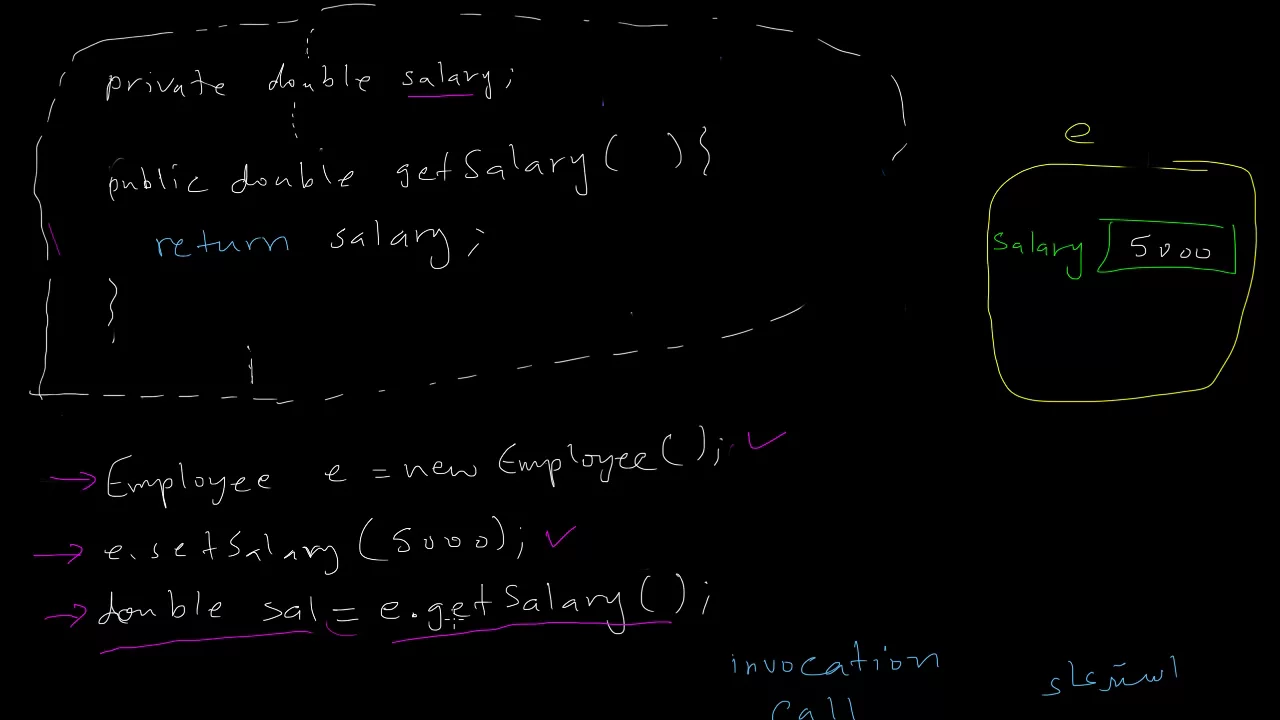 private double salary;
public double getSalary( ){
return salary;
}
e
Salary 5000
Employee e = new Employee();
e.setSalary(5000);
double sal = e.getSalary();
invocation استدعاء
call